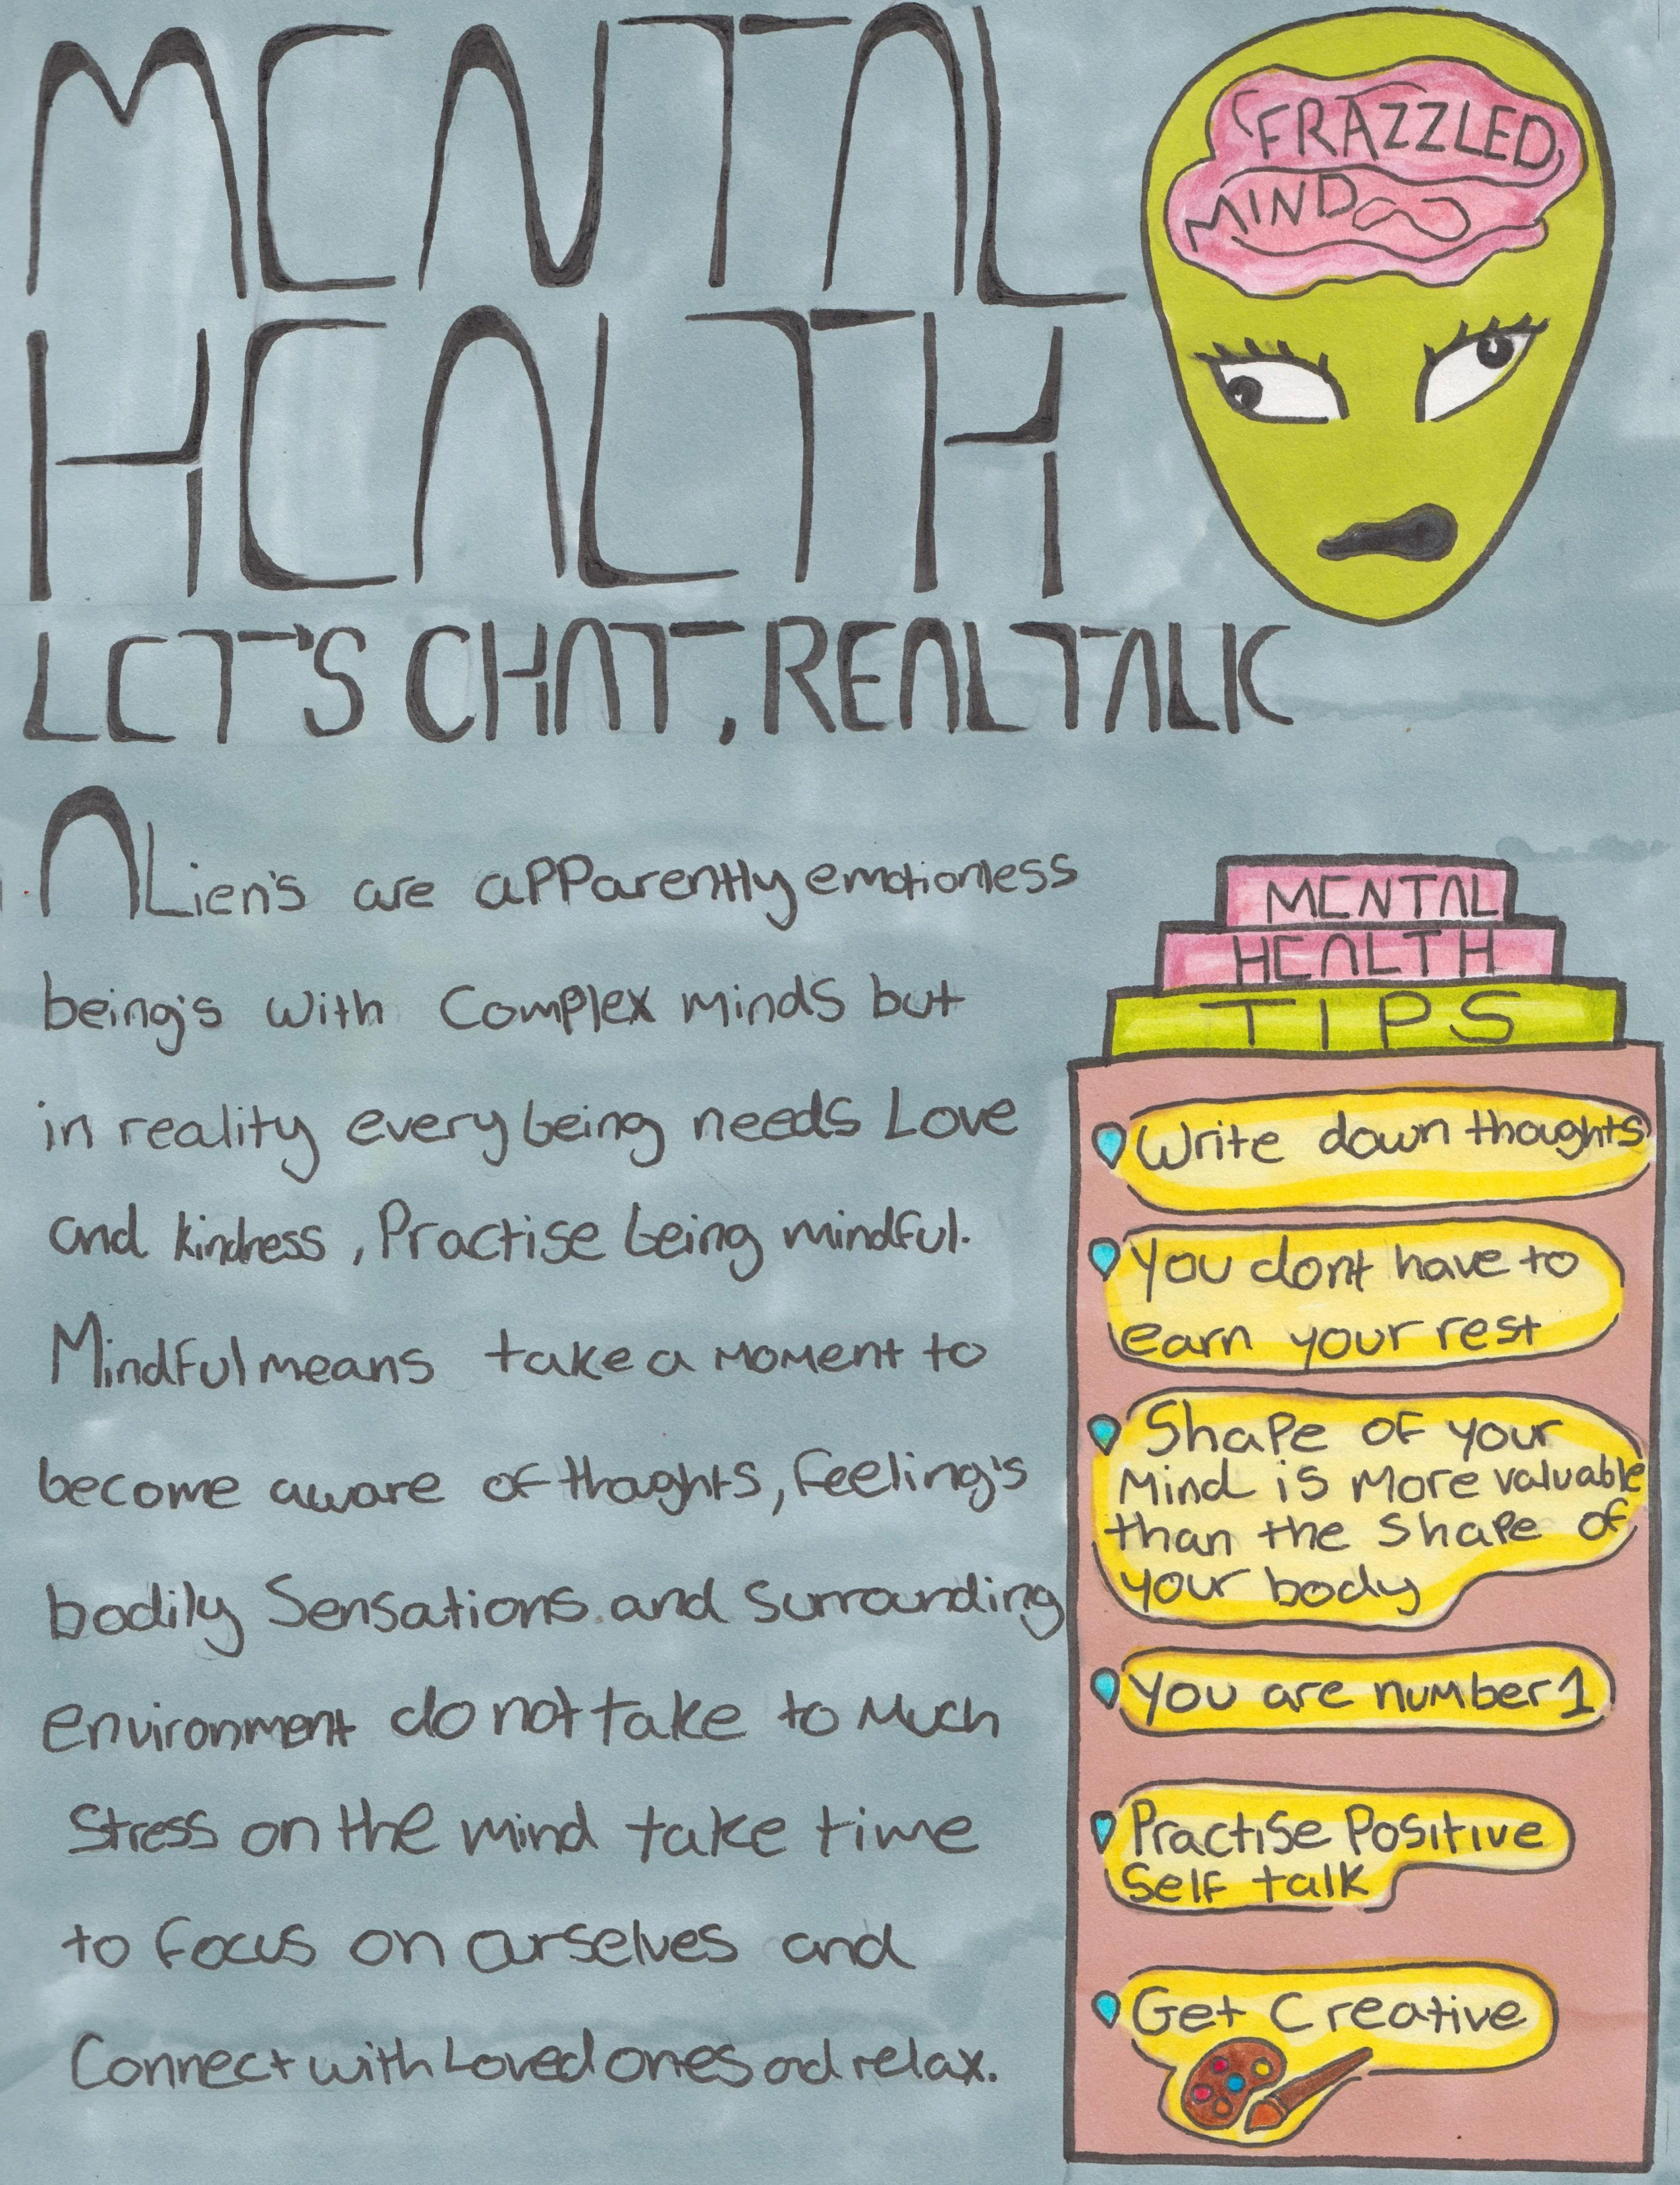 MENTAL
HEALTH
LET'S CHAT, REAL TALK
FRAZZLED
MIND
ALien's are apparently emotionless
being's with Complex minds but
in reality every being needs Love
and kindness, Practise being mindful.
Mindful means take a moment to
become aware of thoghts, feeling's
bodily Sensations and Surrounding
environment do not take to Much
Stress on the mind take time
to focus on ourselves and
Connect with Loved ones and relax.
MENTAL
HEALTH
TIPS
Write down thoughts
You dont have to
earn your rest
Shape of your
Mind is More valuable
than the Shape of
your body
You are number 1
Practise Positive
Self talk
Get Creative